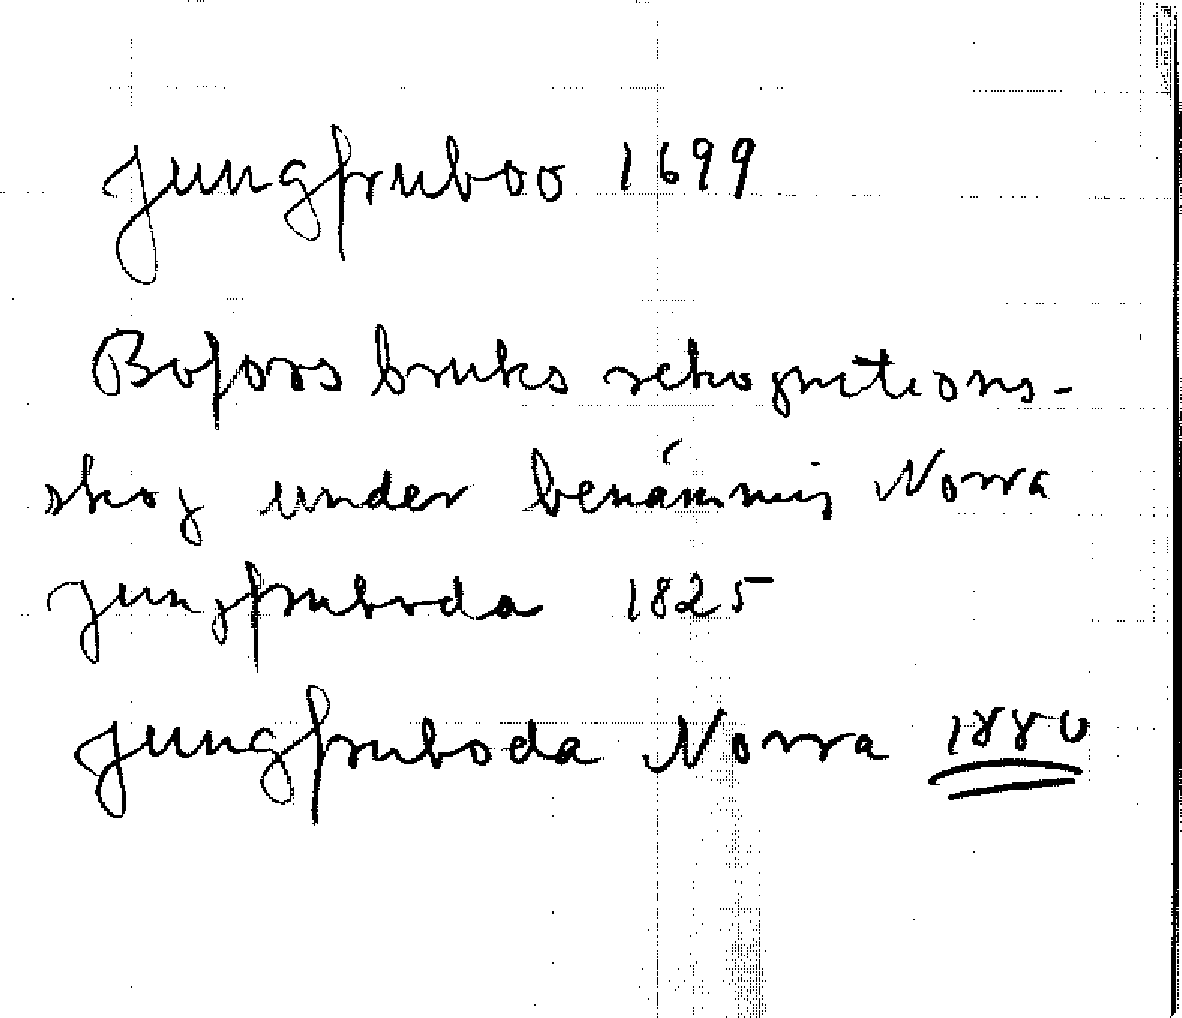 Jungfruboo 1699
Bofors bruks rekognitions-
skog under benämning Norra
Jungfruboda 1825
Jungfruboda Norra 1880